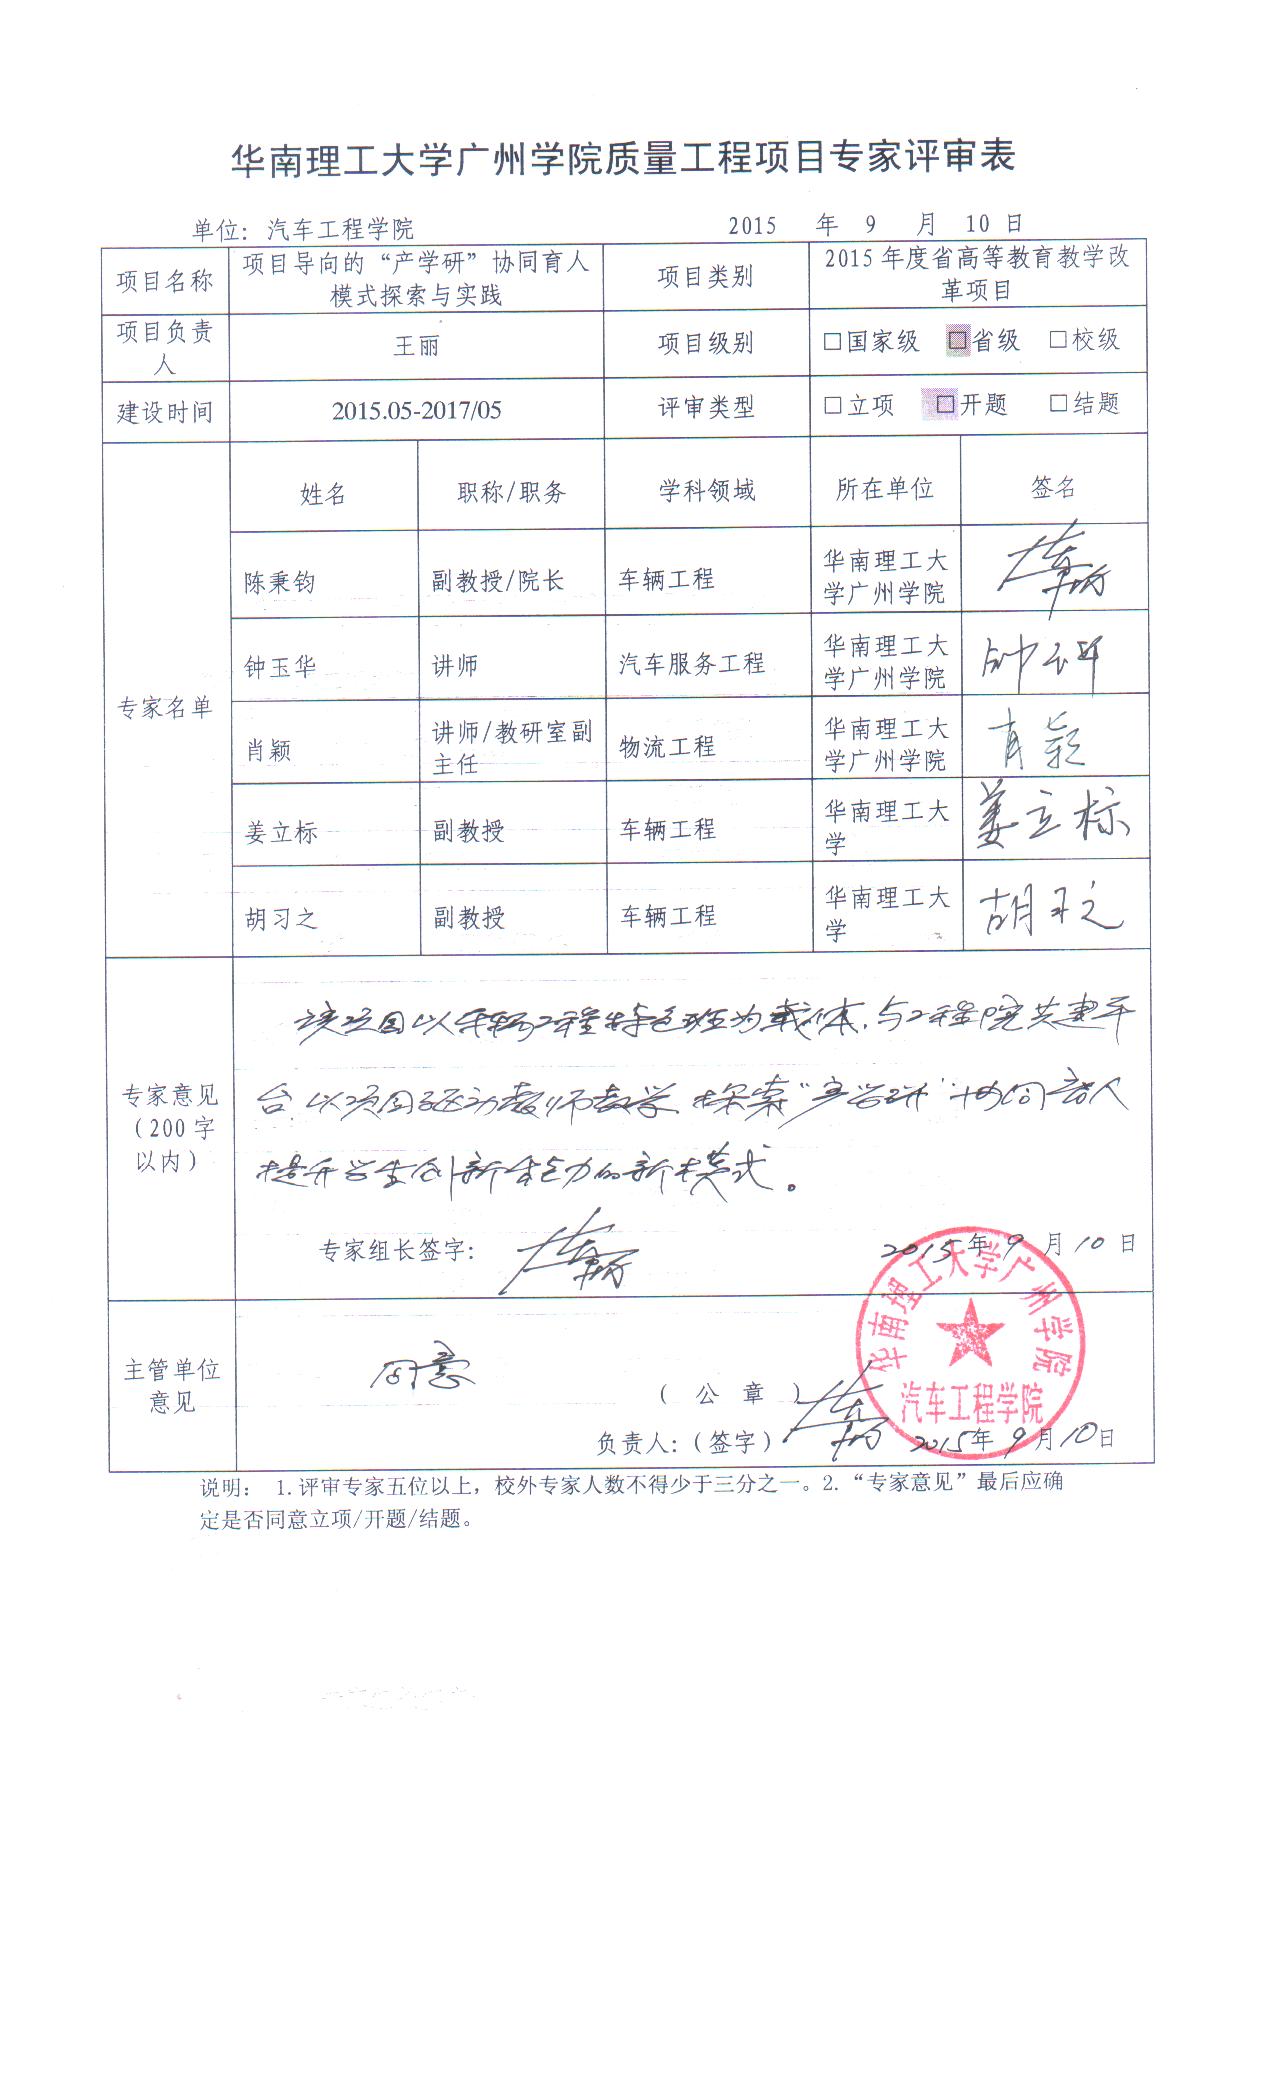 华南理工大学广州学院质量工程项目专家评审表
单位：汽车工程学院 2015 年 9 月 10 日
项目名称 项目导向的“产学研”协同育人 项目类别 2015 年度省高等教育教学改
模式探索与实践 革项目
项目负责 王丽 项目级别 □国家级 □省级 □校级
人
建设时间 2015.05-2017/05 评审类型 □立项 □开题 □结题
姓名 职称/职务 学科领域 所在单位 签名
陈秉钧 副教授/院长 车辆工程 华南理工大
学广州学院
钟玉华 讲师 汽车服务工程 华南理工大 钟玉华
学广州学院
专家名单
肖颖 讲师/教研室副 物流工程 华南理工大 肖颖
主任 学广州学院
姜立标 副教授 车辆工程 华南理工大 姜立标
学
胡习之 副教授 车辆工程 华南理工大 胡习之
学
专家意见
（200 字
以内）
该项目以车辆工程特色班为载体，与工程院共建平
台 以项目驱动教师教学、探索“产学研”协同育人
提升学生创新能力的新模式。
专家组长签字： 2015年 9 月 10 日
主管单位
意见
同意
（ 公 章 ）
负责人：（签字） 2015年 9 月 10 日
华南理工大学广州学院
汽车工程学院
说明： 1.评审专家五位以上，校外专家人数不得少于三分之一。2.“专家意见”最后应确
定是否同意立项/开题/结题。